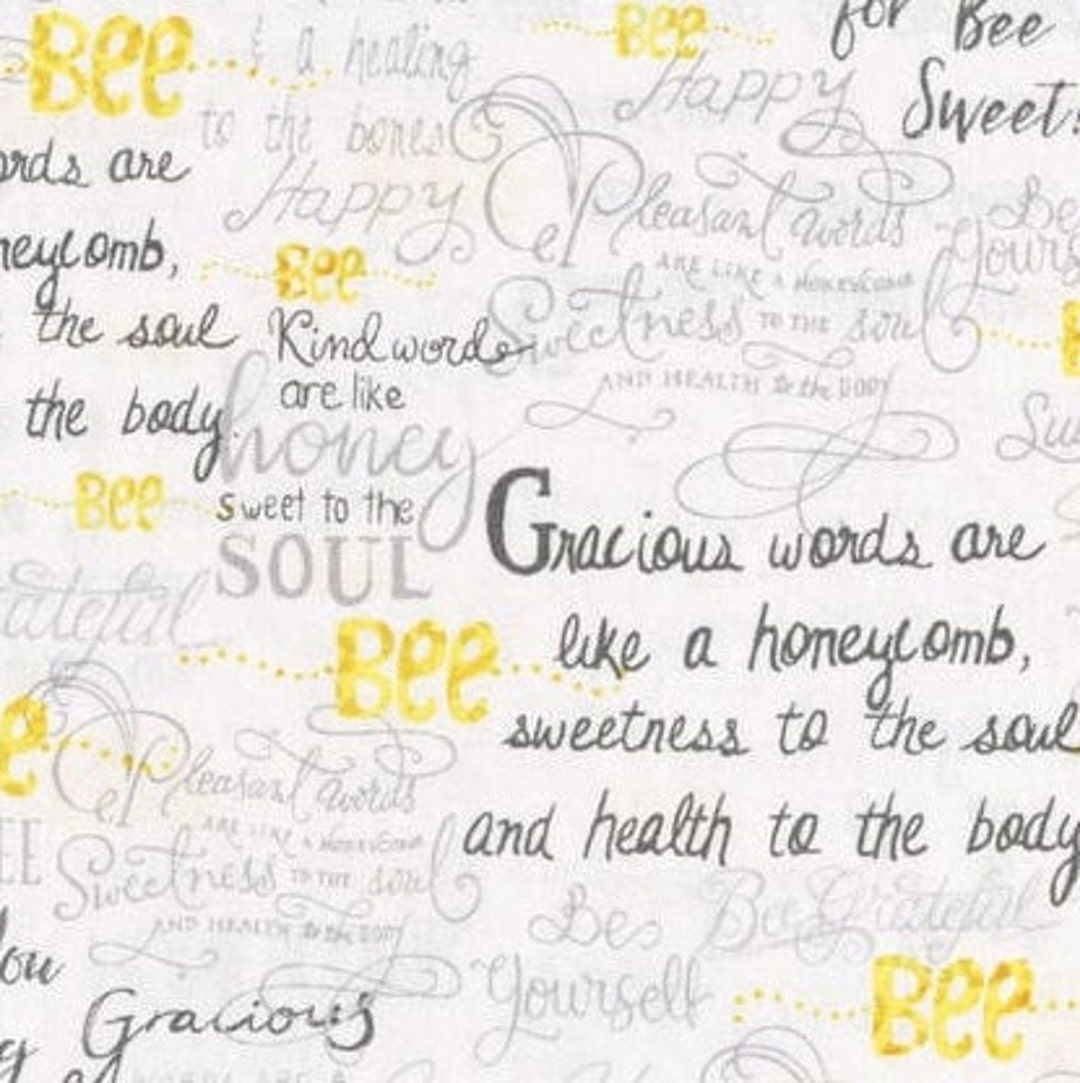 BEE
& a healing
to the bones
BEE
for Bee
Sweet!
Happy
ords are
neycomb,
the soul
the body
Happy
BEE
Pleasant words
ARE LIKE A HONEYCOMB
Sweetness TO THE soul
AND HEALTH to the BODY
Be
Yours
Kind words
are like
honey
sweet to the
SOUL
BEE
Gracious words are
like a honeycomb,
sweetness to the soul
and health to the body
ateful
BEE
e
Pleasant words
ARE LIKE A HONEYCOMB
Sweetness TO THE soul
AND HEALTH to the BODY
EE
Be
Yourself
Bee Grateful
BEE
ou
Gracious
g